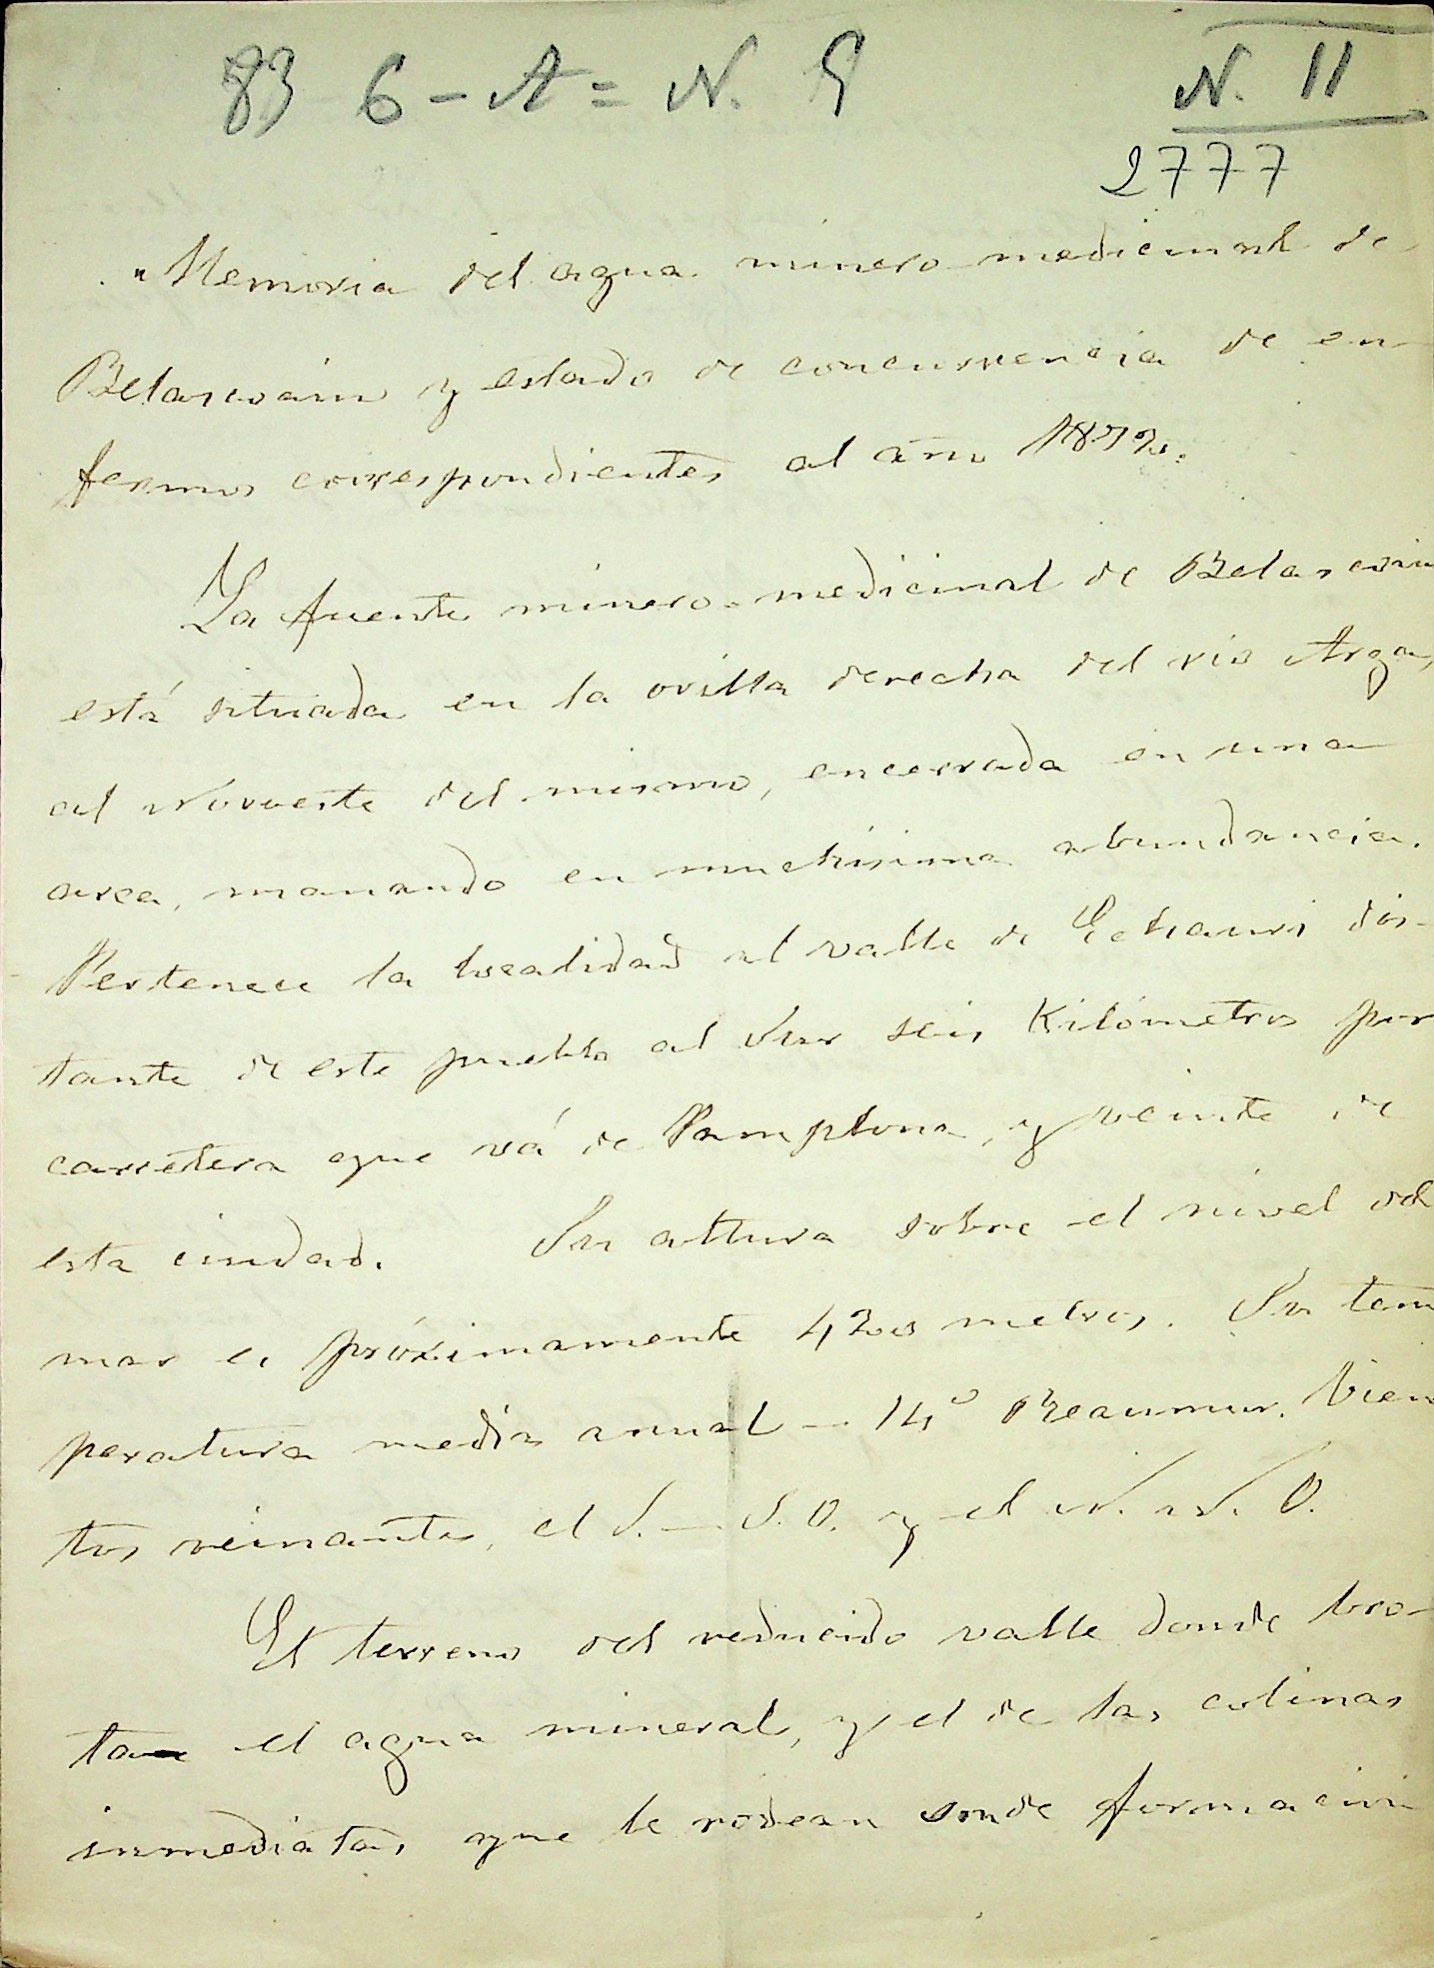 83 6 - A = N. 9
N. 11
2777
"Memoria del agua minero-medicinal de
Belascoain y estado de concurrencia de en-
fermos correspondientes al año 1872.
La fuente minero-medicinal de Belascoain
está situada en la orilla derecha del rio Arga,
al Noroeste del mismo, encerrada en una
arca, manando en muchisima abundancia.
Pertenece la localidad al valle de Echauri dis-
tante de este pueblo al Sur seis Kilómetros por
carretera que vá de Pamplona, y veinte de
esta ciudad. Su altura sobre el nivel del
mar es próximamente metros. Su tem
peratura media anual - 14º Reaumur. Vien
tos reinantes, el S. - S.O. y el N. N. O.
El terreno del reducido valle donde bro-
ta el agua mineral, y el de las colinas
inmediatas que le rodean son de formacion